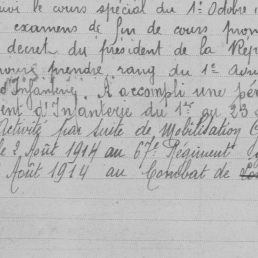 suivi le cours spécial du 1er Octobre
examens de fin de cours prom
décret du président de la Rép
pour prendre rang du 1er avri
d'Infanterie. A accompli une pér
ent d'Infanterie du 1er au 23
activité par suite de Mobilisation G
le 2 Août 1914 au 67e Régiment
Août 1914 au Combat de